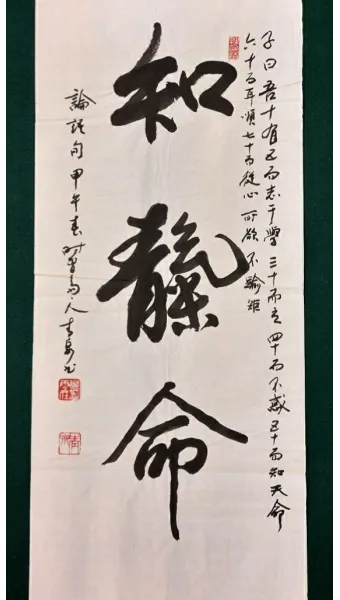 子曰吾十有五而志于學三十而立四十而不惑五十而知天命
六十而耳順七十而從心所欲不踰矩
知靝命
論語句甲午春